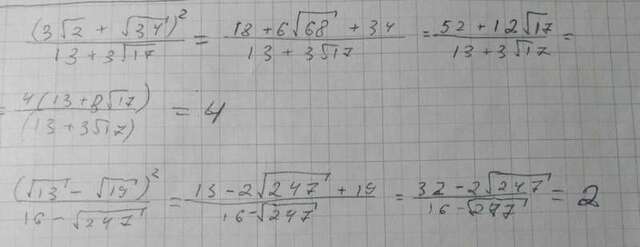 (3√2 + √34)² / 13 + 3√17 = 18 + 6√68 + 34 / 13 + 3√17 = 52 + 12√17 / 13 + 3√17 =
= 4(13 + 8√17) / (13 + 3√17) = 4
(√13 - √19)² / 16 - √247 = 13 - 2√247 + 19 / 16 - √247 = 32 - 2√247 / 16 - √247 = 2